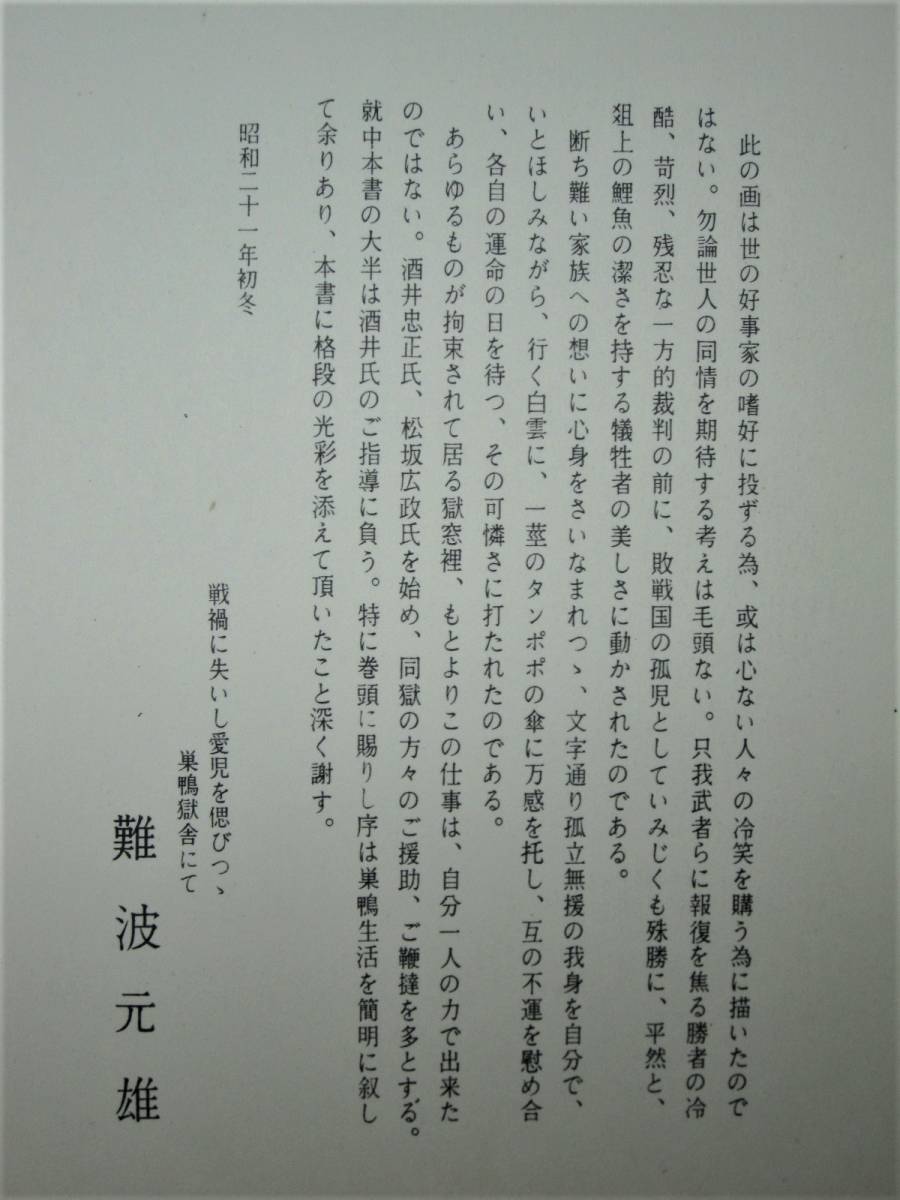 此の画は世の好事家の嗜好に投ずる為、或は心ない人々の冷笑を購う為に描いたので
はない。勿論世人の同情を期待する考えは毛頭ない。只我武者らに報復を焦る勝者の冷
酷、苛烈、残忍な一方的裁判の前に、敗戦国の孤児としていみじくも殊勝に、平然と、
俎上の鯉魚の潔さを持する犠牲者の美しさに動かされたのである。
断ち難い家族への想いに心身をさいなまれつゝ、文字通り孤立無援の我身を自分で、
いとほしみながら、行く白雲に、一茎のタンポポの傘に万感を托し、互の不運を慰め合
い、各自の運命の日を待つ、その可憐さに打たれたのである。
あらゆるものが拘束されて居る獄窓裡、もとよりこの仕事は、自分一人の力で出来た
のではない。酒井忠正氏、松坂広政氏を始め、同獄の方々のご援助、ご鞭撻を多とする。
就中本書の大半は酒井氏のご指導に負う。特に巻頭に賜りし序は巣鴨生活を簡明に叙し
て余りあり、本書に格段の光彩を添えて頂いたこと深く謝す。
昭和二十一年初冬
戦禍に失いし愛児を偲びつゝ
巣鴨獄舎にて
難波元雄